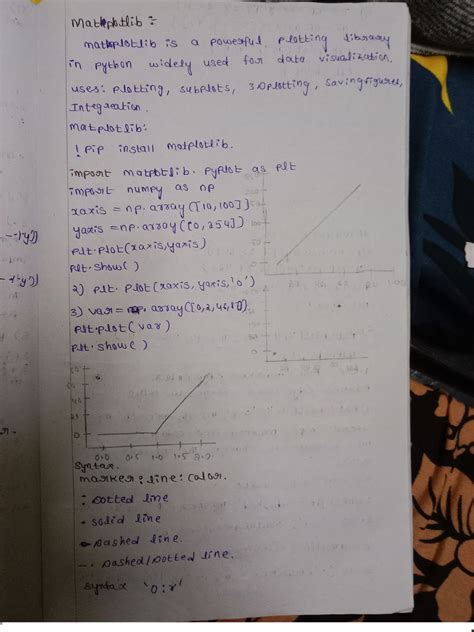 Matplotlib :-
matplotlib is a powerful plotting library
in python widely used for data visualization.
uses: plotting, subplots, 3D plotting, saving figures,
Integreation.
matplotlib:
! pip install matplotlib.
import matplotlib. pyplot as plt
import numpy as np
xaxis = np.array([10,100])
yaxis = np.array([0,254])
plt.plot(xaxis,yaxis)
plt.show()
2) plt. plot(xaxis, yaxis, 'o')
3) var = np. array([0,2,46,
plt.plot(var)
plt.show()
0
0.0 0.5 1.0 1.5 2.0
syntax.
marker: line: color.
: Dotted line
- solid line
-- Dashed line.
-. Dashed/Dotted line.
syntax 'o:r'